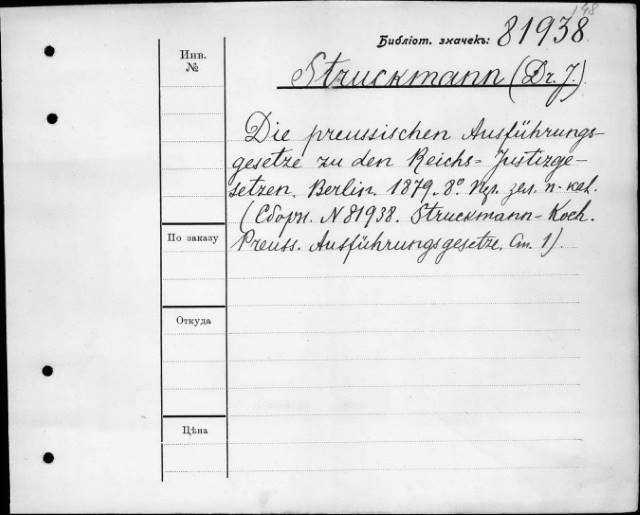 148
Библіот. значекъ: 81938
Инв.
№
Struckmann (Dr. J.)
Die preussischen Ausführungs-
gesetze zu den Reichs=Justizge-
setzen. Berlin. 1879. 8º. зел. п. кал.
(Сборн. N 81938. Struckmann-Koch.
Preuss. Ausführungsgesetze. Ст. 1).
По заказу
Откуда
Цѣна